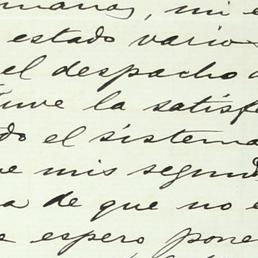 manas, mi e
estado vario
el despacho d
tuve la satisf
do el sistema
e mis segund
a de que no e
e espero pone